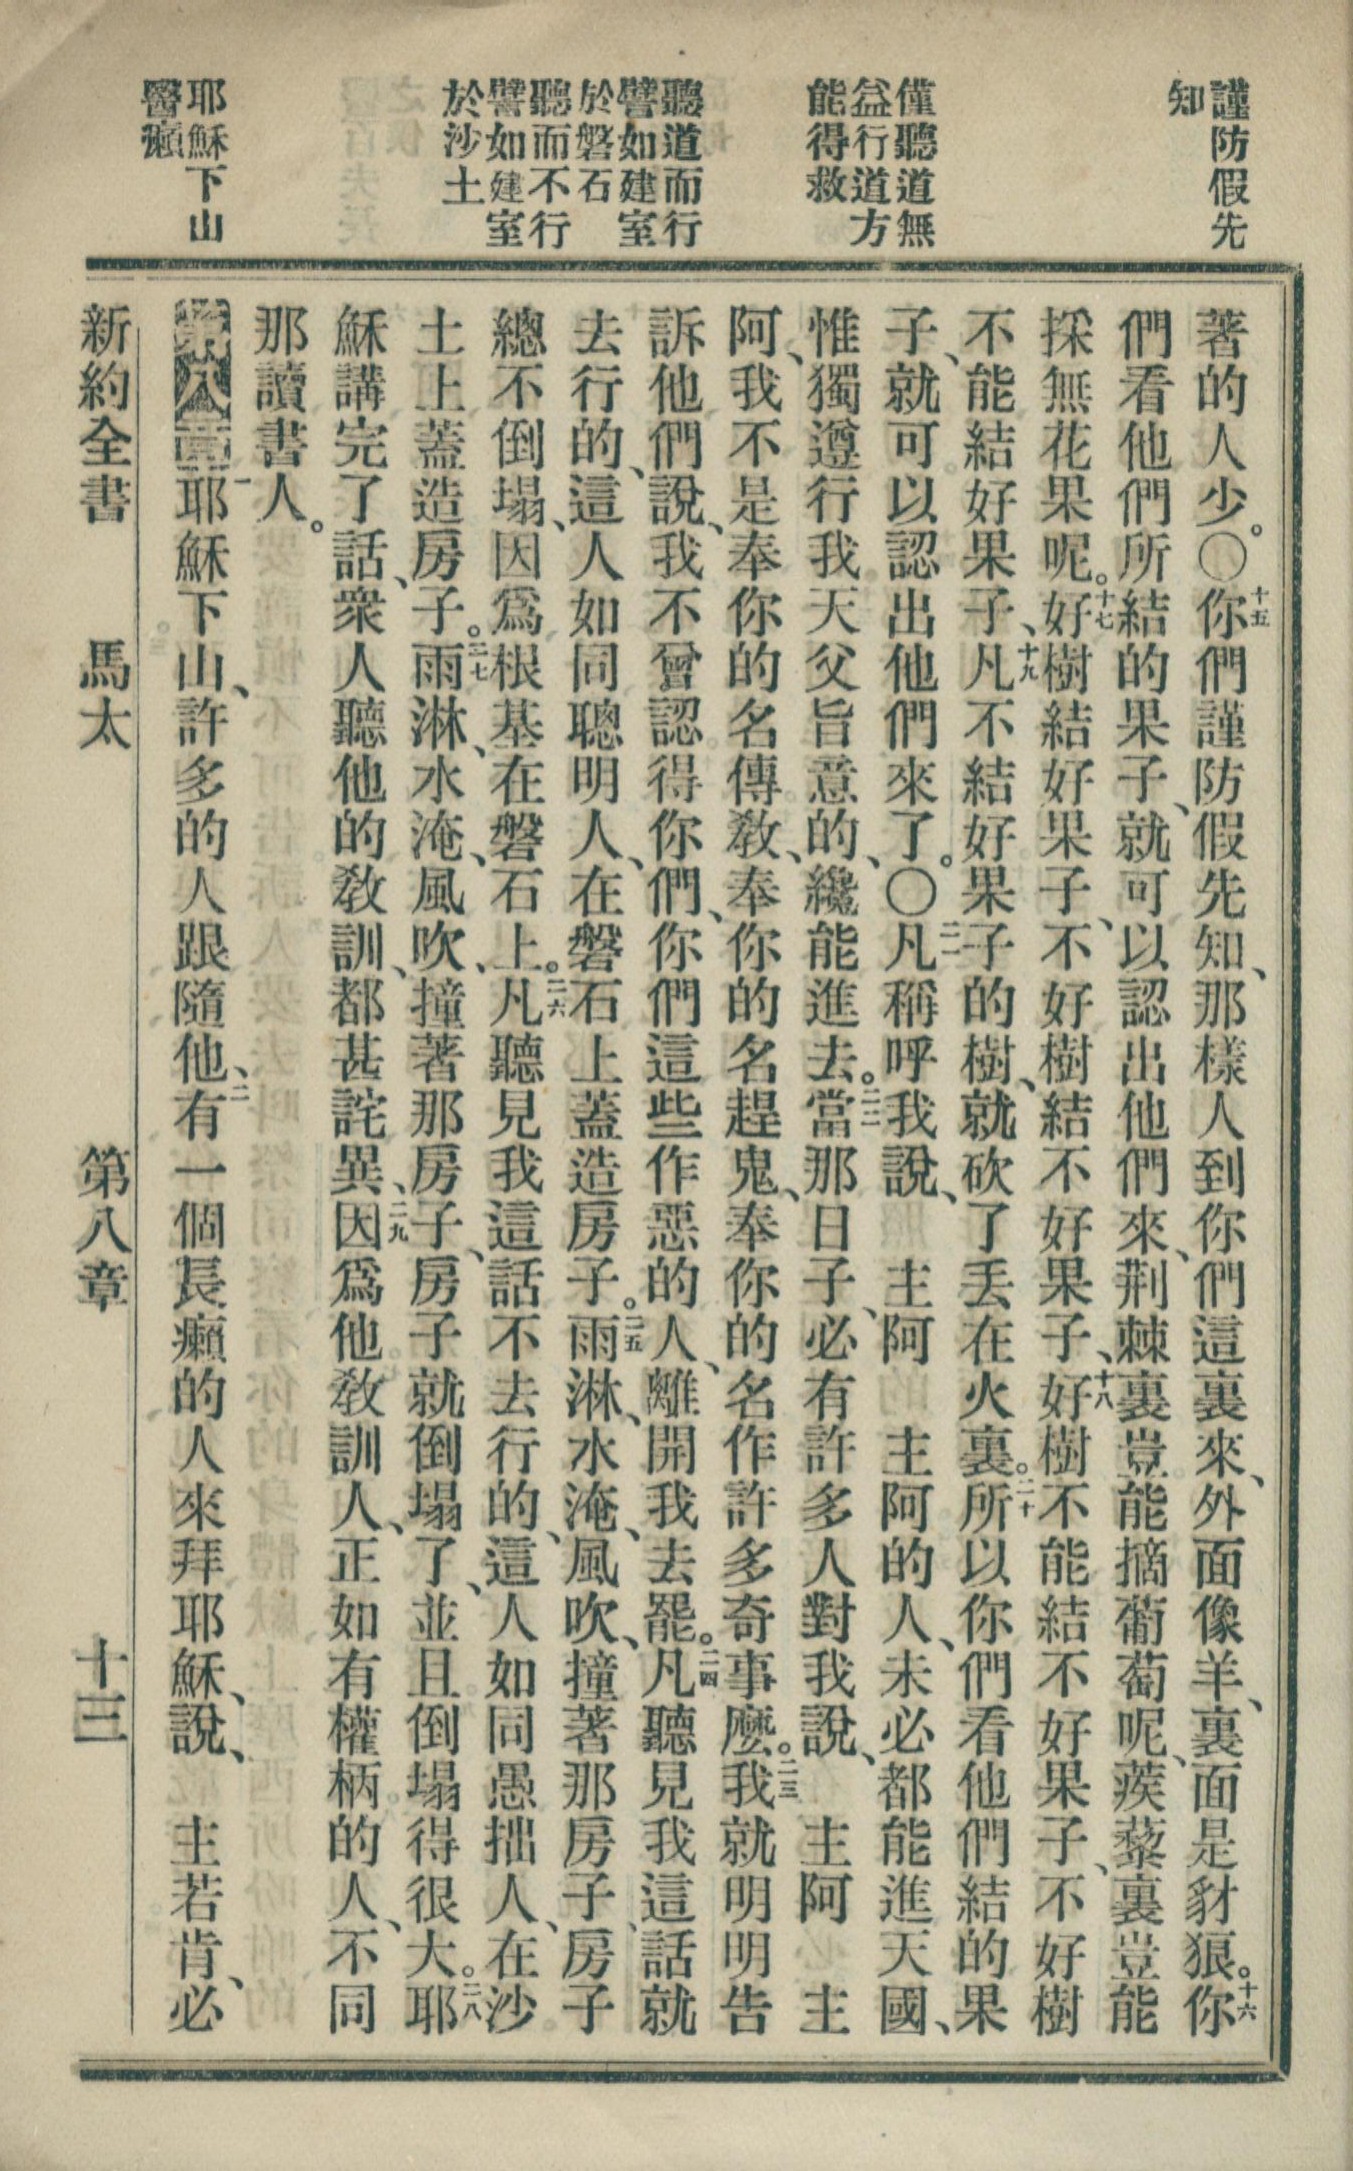 謹防假先
知
僅聽道無
益行道方
能得救
聽道而行
譬如建室
於磐石
聽而不行
譬如建室
於沙土
耶穌下山
醫癩
著的人少。〇十五你們謹防假先知、那樣人到你們這裏來、外面像羊、裏面是豺狼。十六你
們看他們所結的果子、就可以認出他們來、荆棘裏豈能摘葡萄呢、蒺藜裏豈能
採無花果呢。十七好樹結好果子、不好樹結不好果子、十八好樹不能結不好果子、不好樹
不能結好果子、十九凡不結好果子的樹、就砍了丟在火裏。二十所以你們看他們結的果
子、就可以認出他們來了。〇二一凡稱呼我說、主阿 主阿的人、未必都能進天國、
惟獨遵行我天父旨意的、纔能進去。二二當那日子、必有許多人對我說、主阿 主
阿、我不是奉你的名傳敎、奉你的名趕鬼、奉你的名作許多奇事麼。二三我就明明告
訴他們說、我不曾認得你們、你們這些作惡的人、離開我去罷。二四凡聽見我這話就
去行的、這人如同聰明人、在磐石上蓋造房子。二五雨淋、水淹、風吹、撞著那房子、房子
總不倒塌、因爲根基在磐石上。二六凡聽見我這話不去行的、這人如同愚拙人、在沙
土上蓋造房子。二七雨淋、水淹、風吹、撞著那房子、房子就倒塌了、並且倒塌得很大。二八耶
穌講完了話、衆人聽他的敎訓、都甚詫異、二九因爲他敎訓人、正如有權柄的人、不同
那讀書人。
第八章 一耶穌下山、許多的人跟隨他、二有一個長癩的人來拜耶穌、說、主若肯、必
新約全書 馬太 第八章 十三